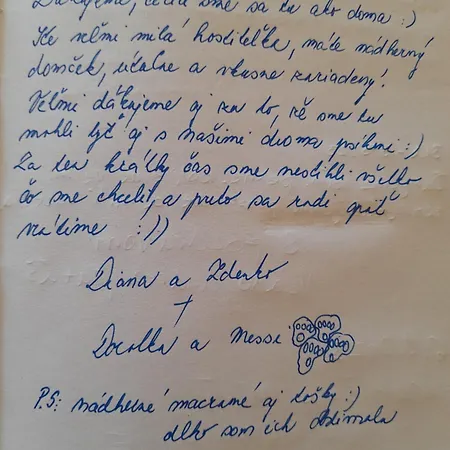 Ďakujeme, cítili sme sa tu ako doma :)
Ste veľmi milá hostiteľka, máte nádherný
domček, útulne a vkusne zariadený!
Veľmi ďakujeme aj za to, že sme tu
mohli byť aj s našimi dvoma psíkmi :)
Za ten krátky čas sme nestihli všetko
čo sme chceli, a preto sa radi opäť
vrátime :))
Diana a Zdenko
+
a Messi
P.S: nádherné macramé aj tošky :)
dlho som ich obdivovala